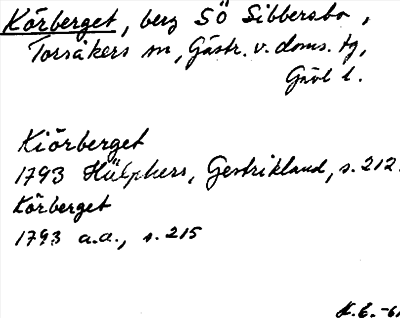 Körberget, berg SÖ Sibbersbo,
Torsåkers sn, Gästr. v. doms. tg,
Gävl l.
Kiörberget
1793 Hülphers, Gestrikland, s. 212.
Körberget
1793 a.a., s. 215
K.E. -61